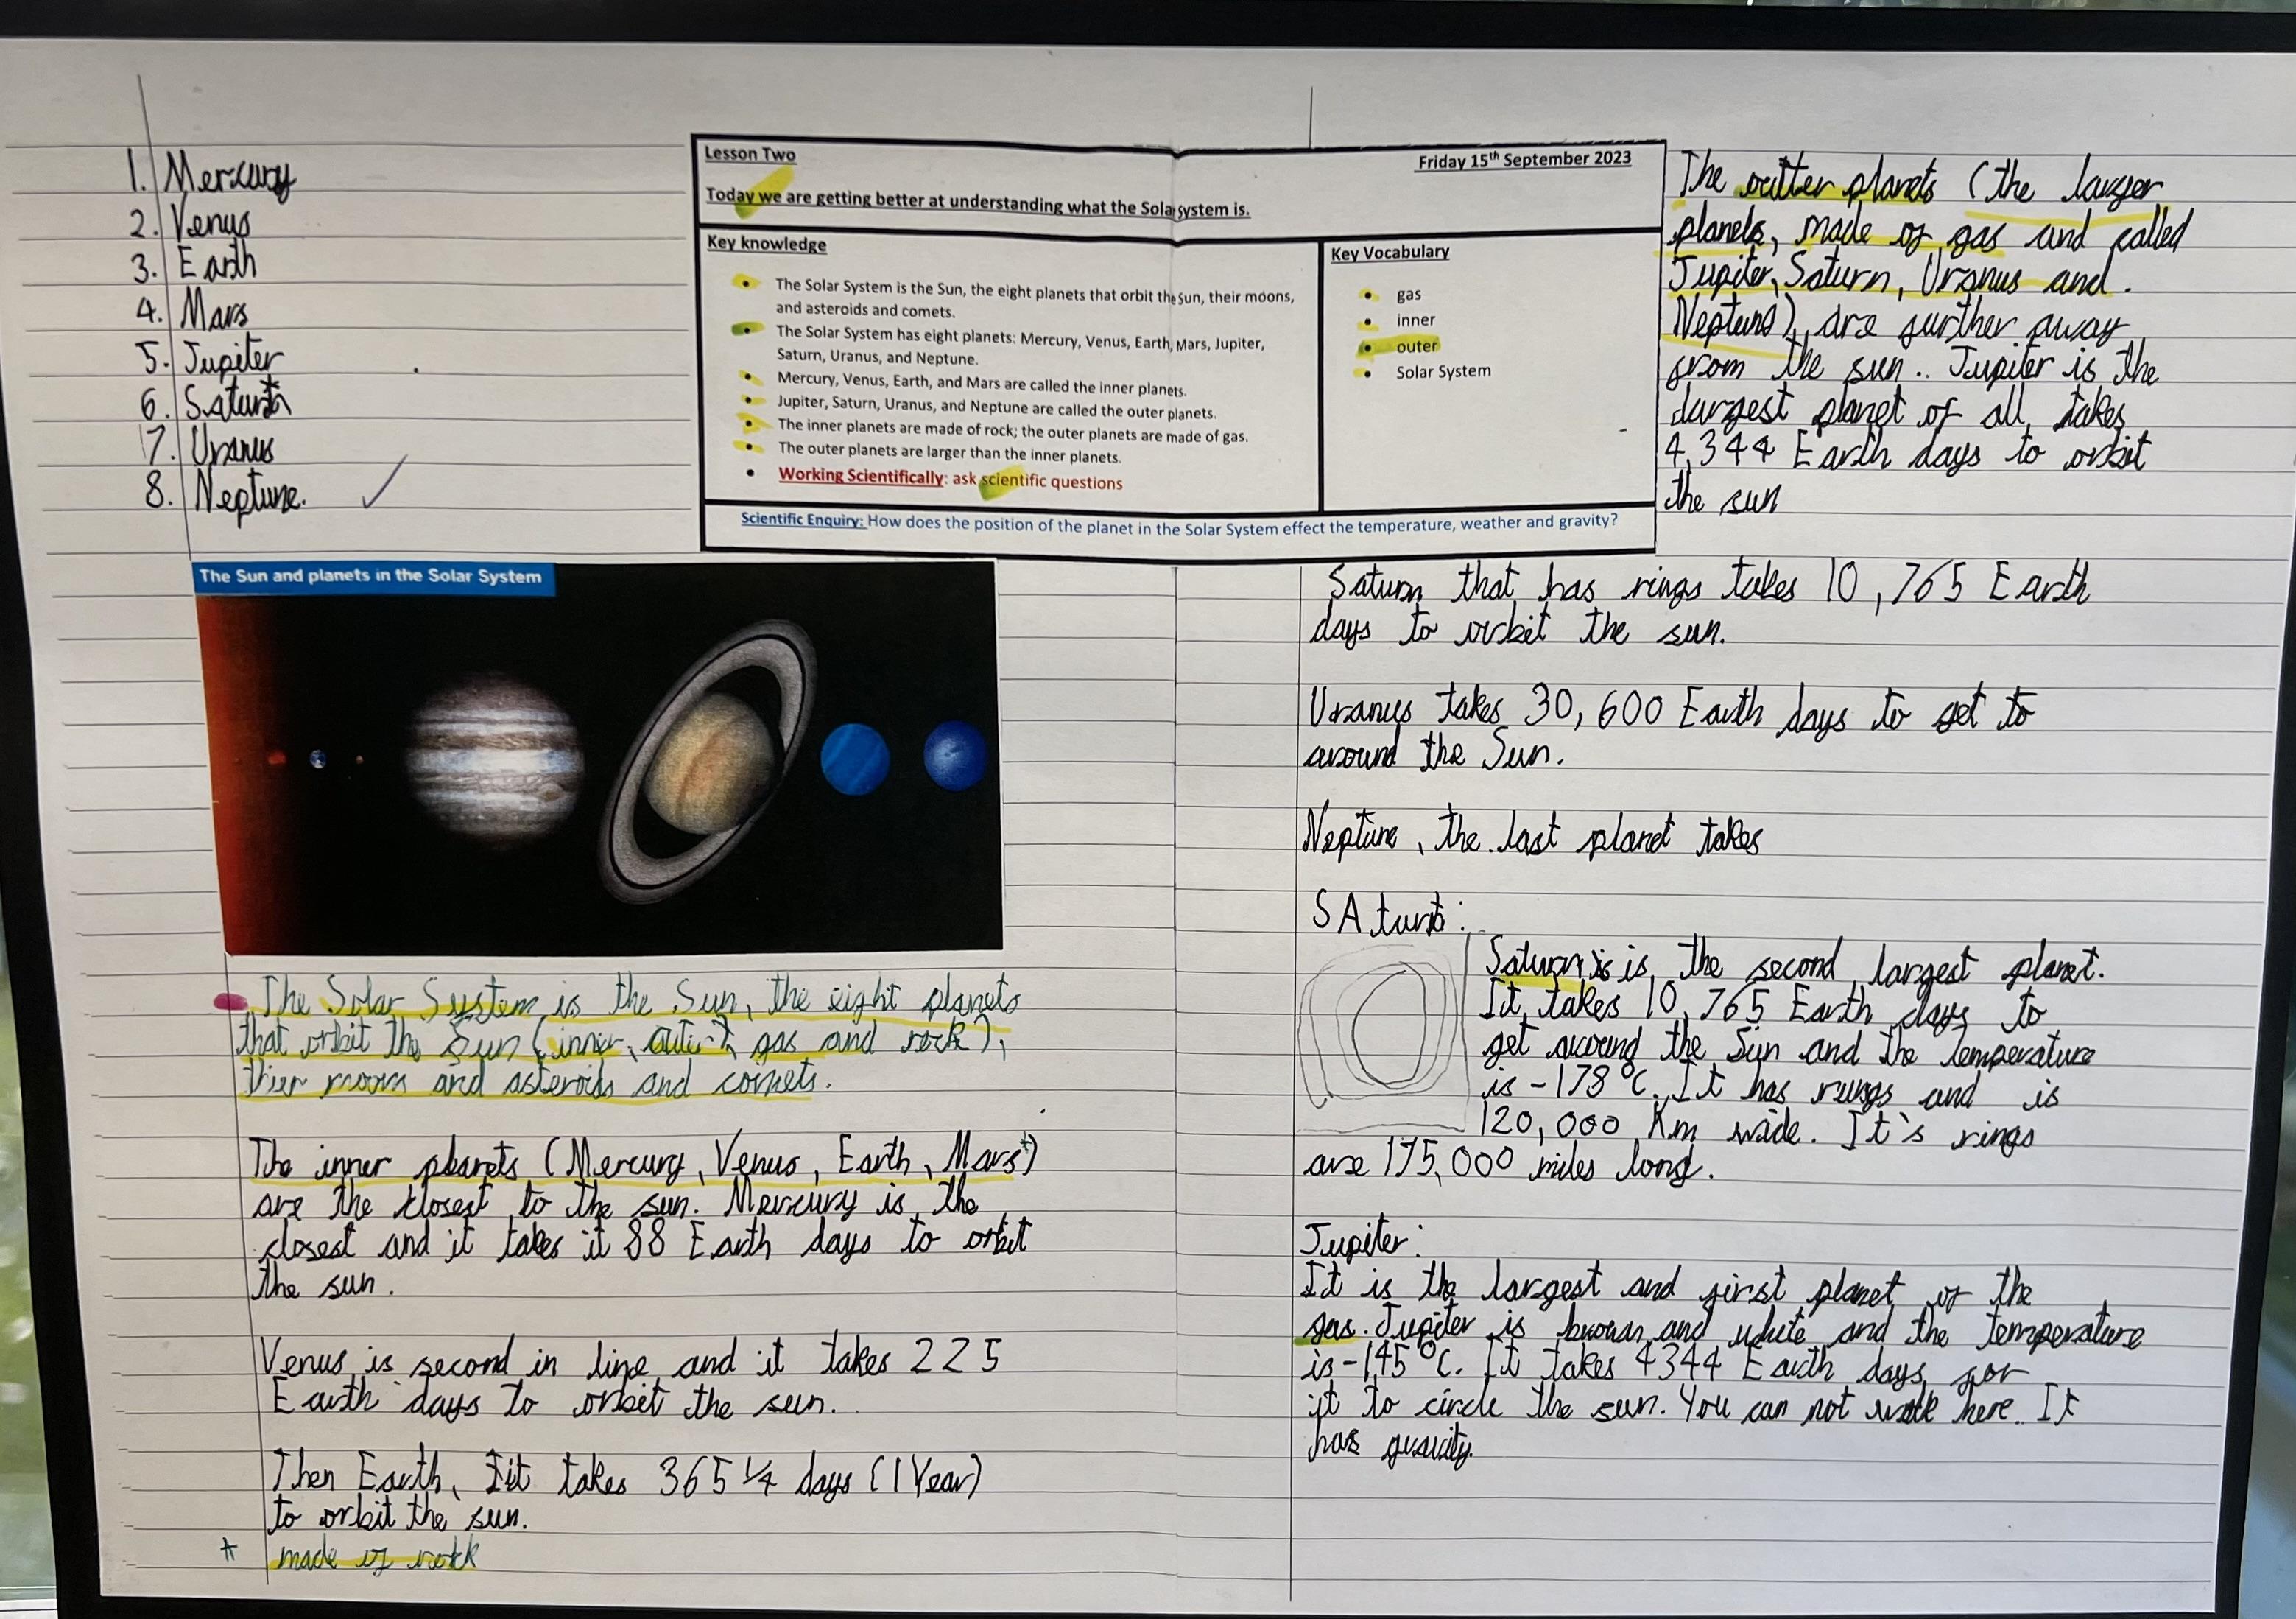 1. Mercury
2. Venus
3. Earth
4. Mars
5. Jupiter
6. Saturn
7. Uranus
8. Neptune.
Lesson Two
Friday 15th September 2023
Today we are getting better at understanding what the Solar System is.
Key knowledge
• The Solar System is the Sun, the eight planets that orbit the Sun, their moons,
and asteroids and comets.
• The Solar System has eight planets: Mercury, Venus, Earth, Mars, Jupiter,
Saturn, Uranus, and Neptune.
• Mercury, Venus, Earth, and Mars are called the inner planets.
• Jupiter, Saturn, Uranus, and Neptune are called the outer planets.
• The inner planets are made of rock; the outer planets are made of gas.
• The outer planets are larger than the inner planets.
• Working Scientifically: ask scientific questions
Key Vocabulary
• gas
• inner
• outer
• Solar System
Scientific Enquiry: How does the position of the planet in the Solar System effect the temperature, weather and gravity?
The Sun and planets in the Solar System
The Solar System is the Sun, the eight planets
that orbit the Sun (inner, gas and rock),
thier moons and asteroids and comets.
The inner planets (Mercury, Venus, Earth, Mars*)
are the closest to the sun. Mercury is the
closest and it takes it 88 Earth days to orbit
the sun.
Venus is second in line and it takes 225
Earth days to orbit the sun.
Then Earth, it takes 365 1/4 days (1 Year)
to orbit the sun.
* made of rock
The outter planets (the larger
planets, made of gas and called
Jupiter, Saturn, Uranus and.
Neptune), are further away
from the sun.. Jupiter is the
largest planet of all, takes
4,344 Earth days to orbit
the sun
Saturn that has rings takes 10,765 Earth
days to orbit the sun.
Uranus takes 30,600 Earth days to get to
around the Sun.
Neptune, the last planet takes
SAturn:
Saturn is is the second largest planet.
It takes 10,765 Earth days to
get around the Sun and the temperature
is -178°C. It has rings and is
120,000 Km wide. It's rings
are 175,000 miles long.
Jupiter:
It is the largest and first planet of the
gas. Jupiter is brown and white and the temperature
is -145°C. It takes 4344 Earth days for
it to circle the sun. You can not walk here. It
has gravity.